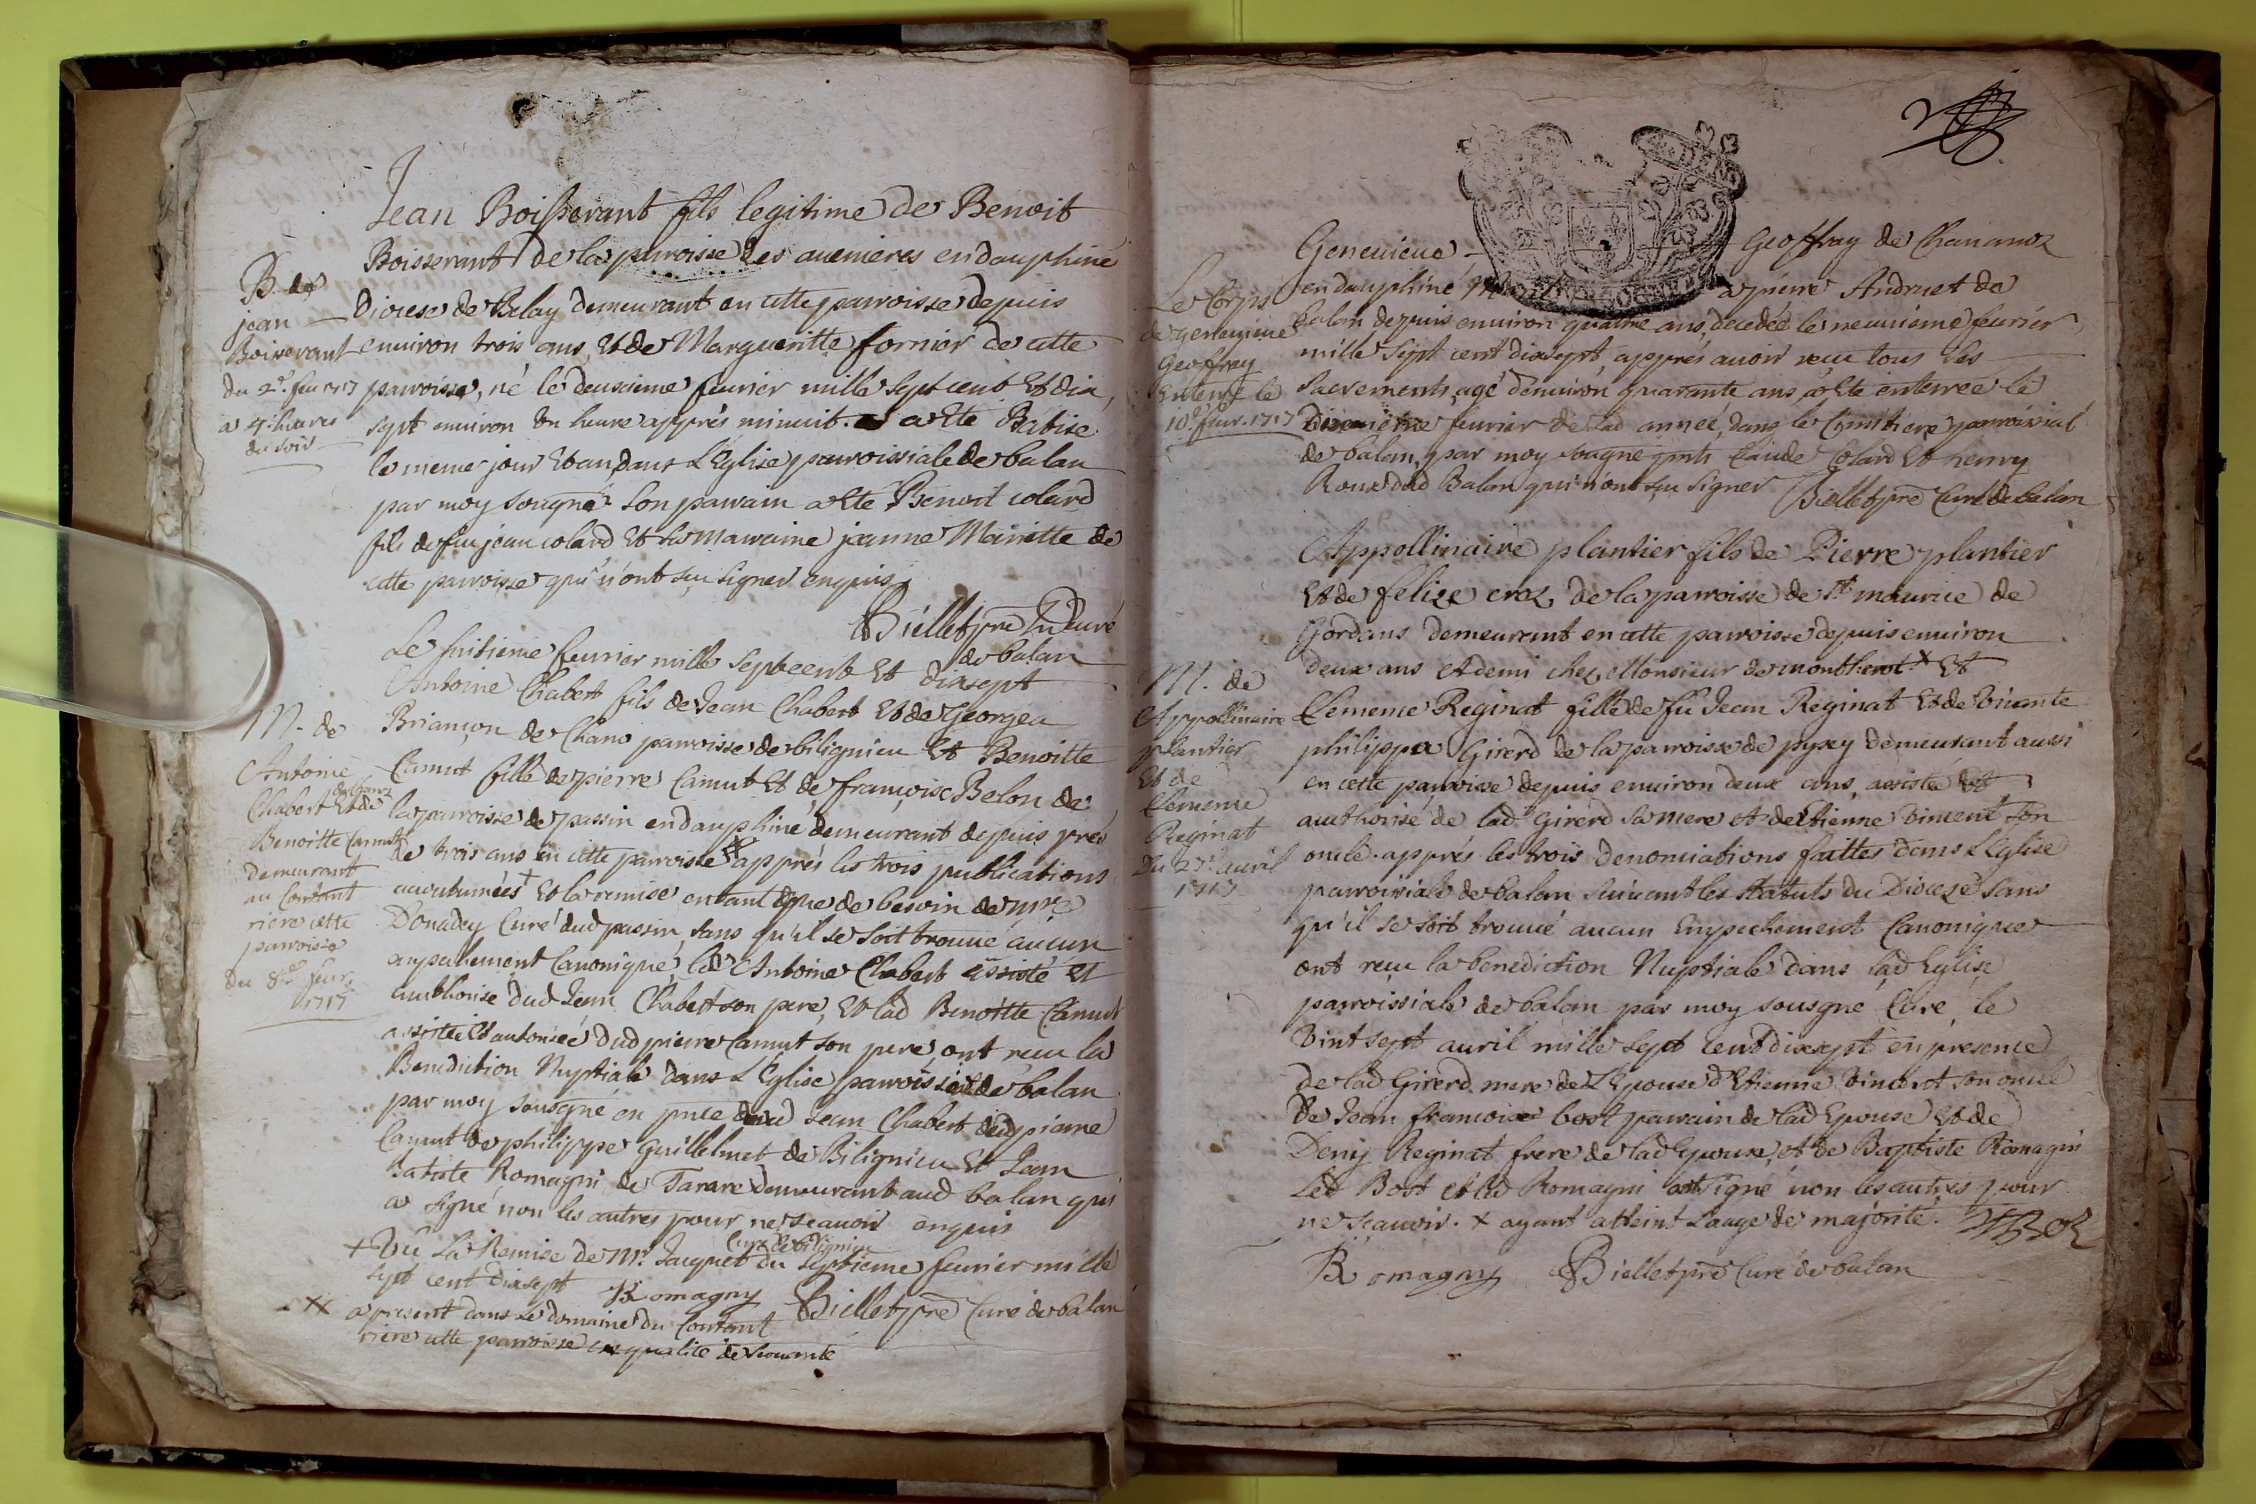 Jean Boisserant fils legitime de Benoit
Boisserant de la parroisse des auenieres en dauphiné
B. de
jean
Boisserant
du 2e feu. 1717
a 4 heures
du soir
Diocese de Belay demeurant en cette parroisse depuis
enuiron trois ans, et de Margueritte fornier de cette
parroisse, né le deuxieme feurier mille sept cent et dix
sept enuiron vn heure appres minuit. a esté Batisé
le meme jour et an dans L'Eglise parroissiale de balan
par moy sousgné son parrain a esté Benoit colard
fils de feu jean colard et sa marraine jeanne Mariette de
cette parroisse qui n'ont sçu signer enquis
Biellet pre Curé
de balan
Le huitieme feurier mille sept cent et dixsept
Antoine Chabert fils de Jean Chabert et de Georgea
M. de
Antoine
Chabert et de
Benoitte Camut
demeurant
au Contant
riere cette
parroisse
du 8e feur.
1717
Briançon de Chano parroisse de bilignieu et Benoitte
Camut fille de pierre Camut et de françoise Belon de
la parroisse de passin en dauphiné demeurant depuis prés
de trois ans en cette parroisse ++ apprés les trois publications
accoutumées + et la remise en tant que de besoin de mre
Donadey Curé dud passin, sans qu'il se soit trouué aucun
empechement Canonique, led Antoine Chabert assisté et
authorisé dud Jean Chabert son pere, et lad Benoitte Camut
assistée et autorisée dud pierre Camut son pere, ont reçu la
Benediction Nuptiale dans L'Eglise parroissiale de balan
par moy sousgné en pnce dud Jean Chabert dud pierre
Camut de philippe Guillelmet de Bilignieu et Jean
Batiste Romagni de Tarare demeurant aud balan qui
a signé non les autres pour ne sçauoir enquis
+ Vu La Remise de Mr. Jacquet Curé de bilignieu du septieme feurier mille
sept cent dixsept Romagny Biellet pre Curé de balan
++ a present dans le domaine du Contant
riere cette parroisse en qualité de seruante
Geneuieue Geoffray de Chananoz
en dauphiné a pierre Andruet de
Le Corps
de geneuieue
Geoffray
Enterré le
10e feur. 1717
balan depuis enuiron quatre ans, decedée le neuuieme feurier
mille sept cent dixsept, apprés auoir reçu tous les
sacrements, agé d'enuiron quarante ans, a esté enterrée le
Dixieme feurier de lad année, dans le Cimitiere parroissial
de balan, par moy sousgné pnts Claude Colard et henry
Roux dud Balan qui n'ont sçu signer Biellet pre Curé de balan
Appollinaire plantier fils de Pierre plantier
et de felize croz de la parroisse de st maurice de
Gordans demeurant en cette parroisse depuis enuiron
deux ans et demi chez Monsieur de montherot x et
M. de
Appollinaire
plantier
et de
Clemence
Reginat
Du 27e auril
1717
Clemence Reginat fille de fû Jean Reginat et de viuante
philippa Girerd de la parroisse de pysey demeurant aussi
en cette parroisse depuis enuiron deux ans, assistée et
authorisé de lad Girerd sa mere et d'Etienne Vincent son
oncle. apprés les trois denonciations faittes dans L'Eglise
parroissiale de balan suiuant les statuts du Dioceze sans
qu'il se soit trouué aucun Empechement Canonique
ont reçu la benediction Nuptiale dans lad Eglise
parroissiale de balan par moy sousgné Curé, le
vint sept auril mille sept cent dixsept en presence
de lad Girerd mere de L'Epouse d'Etienne Vincent son oncle
de Jean françois bost parrain de lad Epouse et de
Denis Reginat frere de lad Epouse, et de Baptiste Romagni
Led Bost et led Romagni ont signé non les autres pour
ne sçauoir. x ayant atteint L'auge de majorité.
Romagny Biellet pre Curé de balan